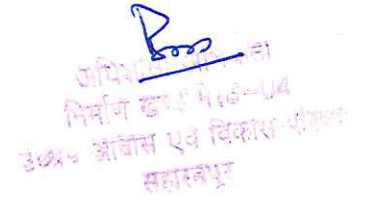 अधिशासी अभियन्ता
निर्माण खण्ड मेरठ-04
उ०प्र० आवास एवं विकास परिषद
सहारनपुर